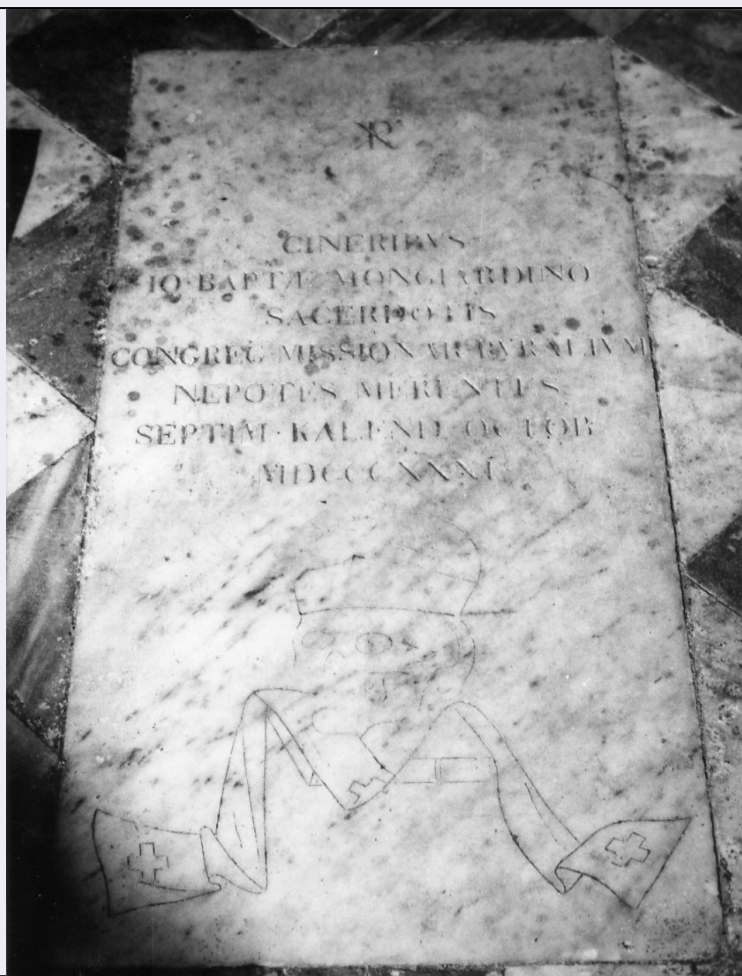 ☧
CINERIBVS
IO·BAPTÆ MONGIARDINO
SACERDOTIS
CONGREG MISSIONAR RVRALIVM
NEPOTES MERENTES
SEPTIM·KALEND OCTOB
MDCCCXXXI